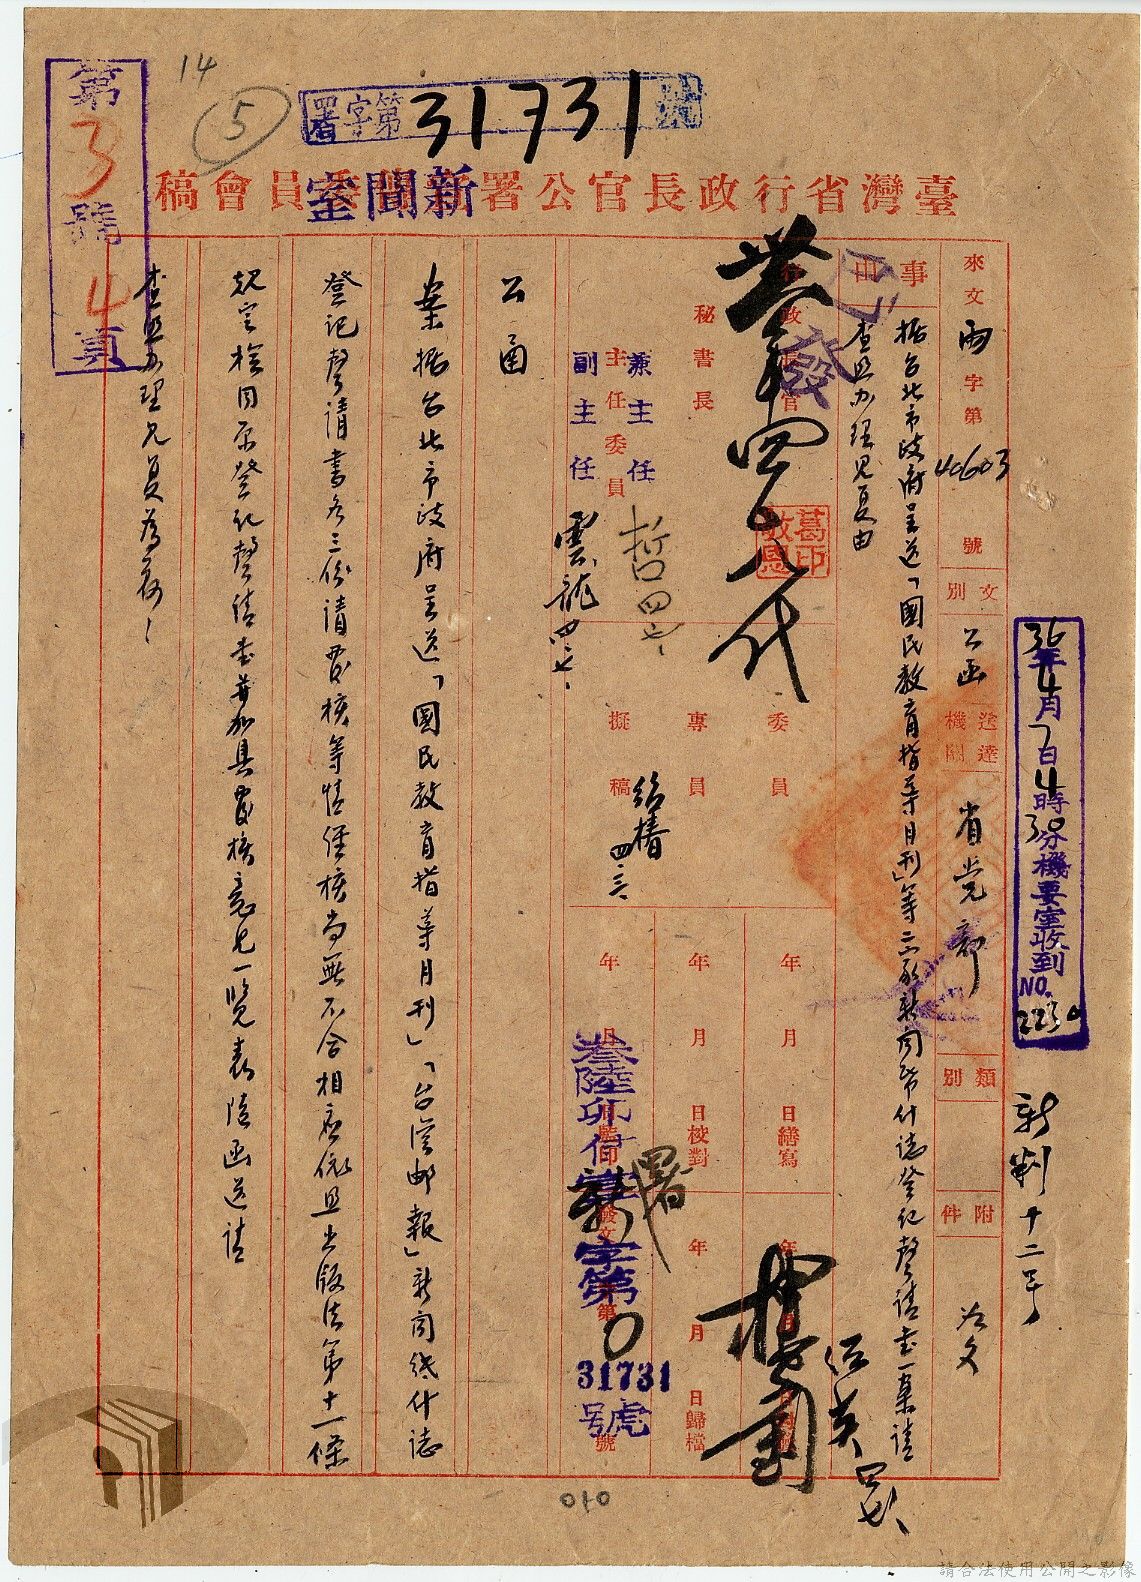 14
⑤
署字第31731號
第3號4頁
臺灣省行政長官公署新聞室員會稿
來文
兩
字第
40603
號
文別
公函
送達機關
省党部
類別
附件
如文
事由
据台北市政府呈送「國民教育指导月刊」等二家新闻紙什誌登記聲請書一案請
查照办理見复由
已發
秘書長
葛敬恩印
兼主任
主任委員
副主任
哲 四七、
雲龍 四、七、
委員
專員
擬稿
紹椿 四、三
年 月 日繕寫
年 月 日校對
年 月 日歸檔
叁陸卯
署
字第
31731
號
36年4月7日4時30分機要室收到
NO.
2230
公函
案据台北市政府呈送「國民教育指导月刊」「台灣邮報」新闻紙什誌
登记聲请書各三份请覈核等情經核尚無不合相应依照出版法第十一條
規定检同原登記聲請書并加具覈核意見一覽表隨函送請
查照办理見复為荷！
010
請合法使用公開之影像